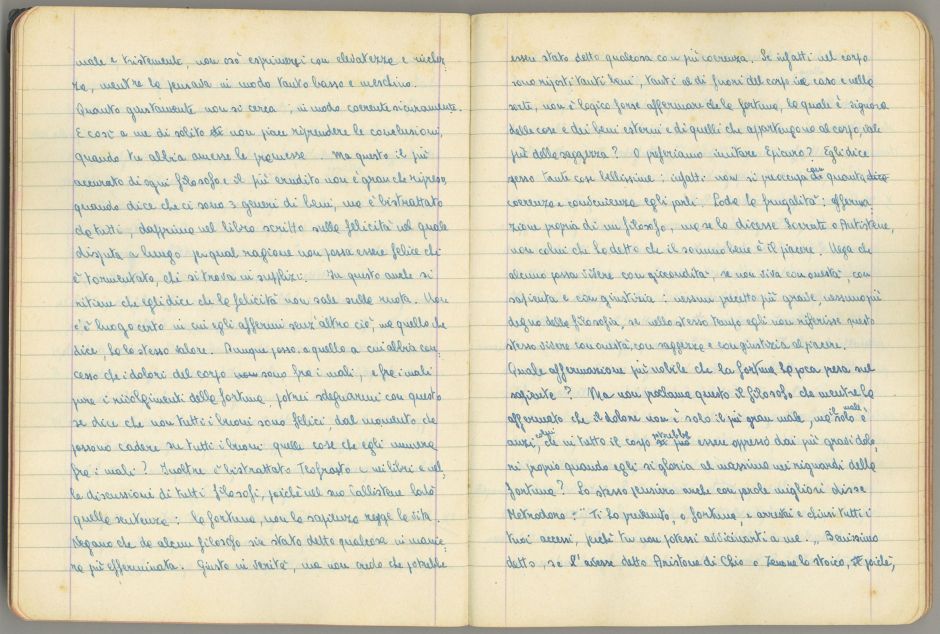 male e tristemente, non osò esprimersi con elevatezza e ricchez-
za, mentre la pensava in modo tanto basso e meschino.
Quanto giustamente non si cerca; in modo coerente sicuramente.
E così a me di solito non piace riprendere le conclusioni,
quando tu abbia ammesse le premesse. Ma questo il più
accurato di ogni filosofo e il più erudito non è gran che ripreso
quando dice che ci sono 3 generi di beni, ma è bistrattato
da tutti, dapprima nel libro scritto sulla felicità nel quale
disputa a lungo per qual ragione non possa essere felice chi
è tormentato, chi si trova in supplizi. In questo anche si
ritiene che egli dice che la felicità non sale sulla ruota. Non
c'è luogo certo in cui egli affermi senz'altro ciò, ma quello che
dice, ha lo stesso valore. Dunque posso, a quello a cui abbia con-
cesso che i dolori del corpo sono fra i mali, e fra i mali
pure i rivolgimenti della fortuna, potrei sdegnarmi con questo
se dice che non tutti i buoni sono felici, dal momento che
possono cadere su tutti i buoni quelle cose che egli numera
fra i mali? Inoltre è bistrattato Teofrasto e nei libri e nel-
le discussioni di tutti i filosofi, poiché nel suo Callistene lodò
quella sentenza: la fortuna, non la sapienza regge la vita.
Negano che da alcun filosofo sia stato detto qualcosa in manie-
ra più effeminata. Giusto in verità, ma non credo che potrebbe
esser stato detto qualcosa con più coerenza. Se infatti nel corpo
sono riposti tanti beni, tanti al di fuori del corpo in caso e nella
sorte, non è logico forse affermare che la fortuna, la quale è signora
delle cose e dei beni esterni e di quelli che appartengono al corpo, vale
più della saggezza? O preferiamo imitare Epicuro? Egli dice
spesso tante cose bellissime: infatti non si preoccupa con quanta
coerenza e consistenza egli parli. Loda la frugalità: afferma-
zione propria di un filosofo, ma se lo dicesse Socrate o Antistene,
non colui che ha detto che il sommo bene è il piacere. Nega che
alcuno possa vivere con giocondità, se non viva con onestà, con
sapienza e con giustizia: nessun precetto più grave, nessuno più
degno della filosofia, se nello stesso tempo egli non riferisse questo
stesso vivere con onestà, con saggezza e con giustizia al piacere.
Quale affermazione più nobile che la fortuna ha poca presa nel
sapiente? Ma non proclama questo il filosofo che mentre ha
affermato che il dolore non è solo il più gran male, ma il solo male,
anzi, colui che in tutto il corpo potrebbe essere oppresso dai più gravi dolo-
ri proprio quando egli si gloria al massimo nei riguardi della
fortuna? Lo stesso pensiero anche con parole migliori disse
Metrodoro: "Ti ho prevenuto, o fortuna, e arrestai e chiusi tutti i
tuoi accessi, perché tu non potessi avvicinarti a me." Benissimo
detto, se l'avesse detto Aristone di Chio o Zenone lo stoico, poiché,